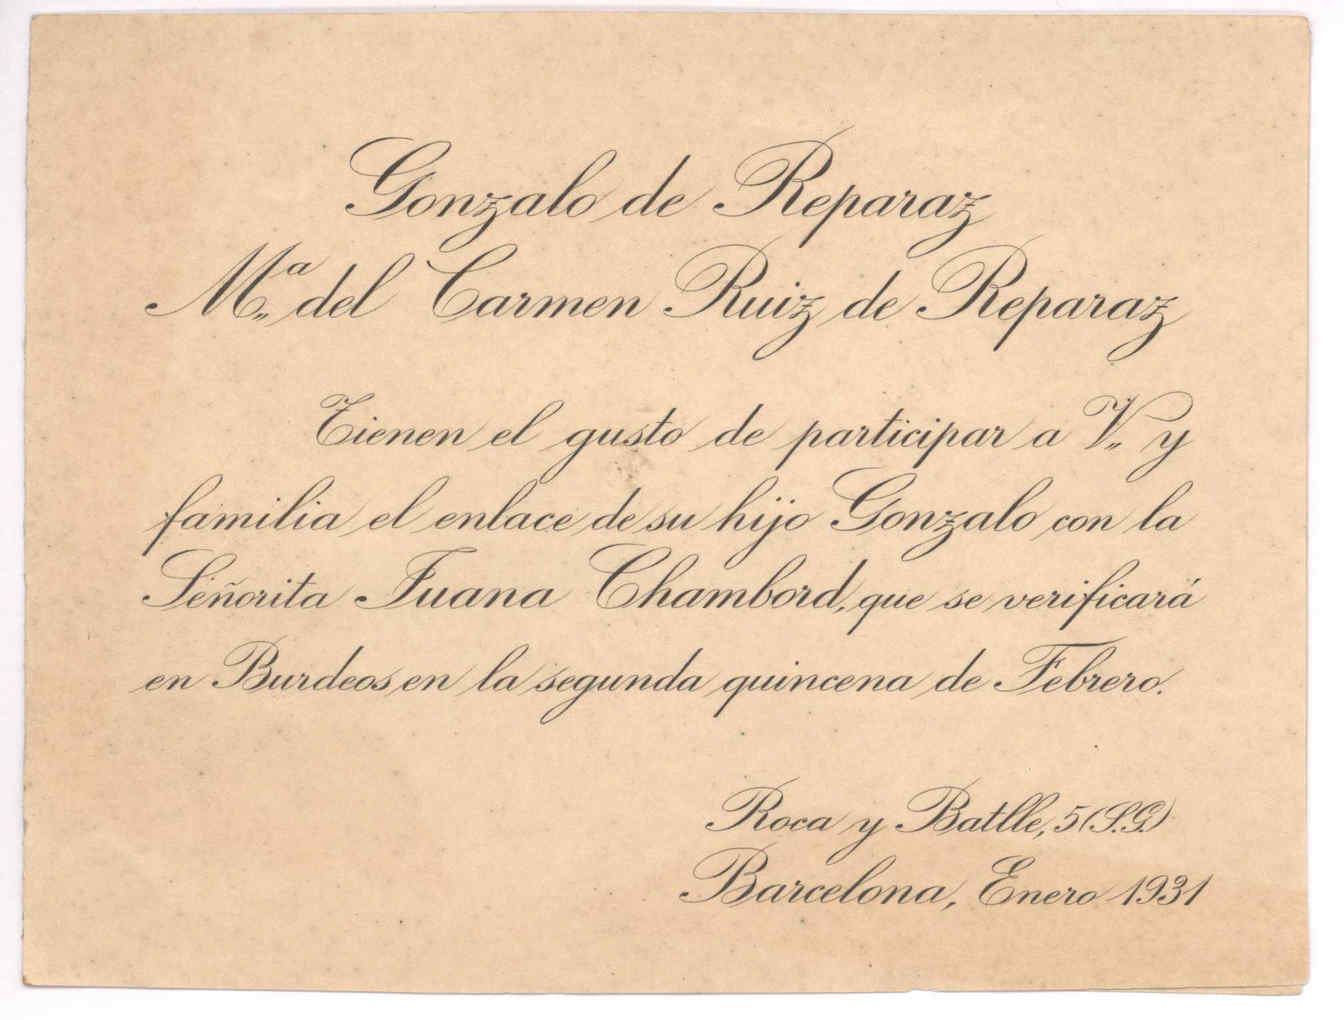 Gonzalo de Reparaz
Mª del Carmen Ruiz de Reparaz
Tienen el gusto de participar a V. y
familia el enlace de su hijo Gonzalo con la
Señorita Juana Chambord, que se verificará
en Burdeos en la segunda quincena de Febrero.
Roca y Batlle, 5 (S.G.)
Barcelona, Enero 1931